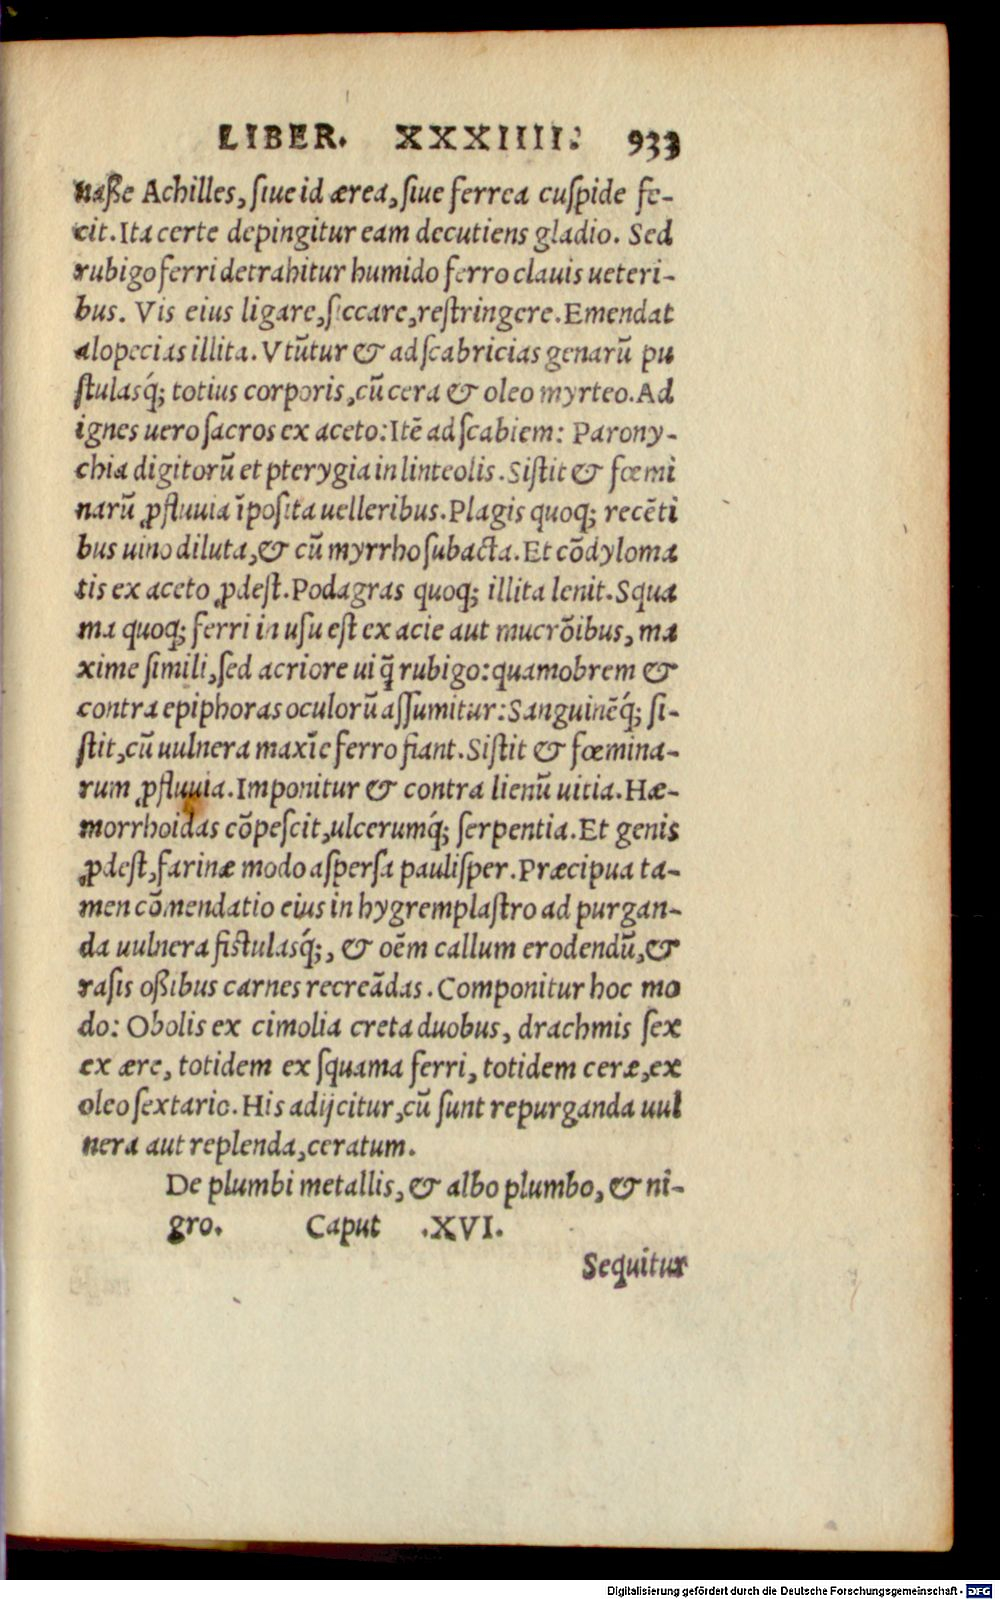 LIBER. XXXIIII. 933
naſſe Achilles, ſiue id ærea, ſiue ferrea cuſpide fe-
cit. Ita certe depingitur eam decutiens gladio. Sed
rubigo ferri detrahitur humido ferro clauis ueteri-
bus. Vis eius ligare, ſiccare, reſtringere. Emendat
alopecias illita. Vtũtur & ad ſcabricias genarũ pu
ſtulasq́; totius corporis, cũ cera & oleo myrteo. Ad
ignes uero ſacros ex aceto: Itẽ ad ſcabiem: Parony-
chia digitorũ et pterygia in linteolis. Siſtit & fœmi
narũ ꝓfluuia ĩpoſita uelleribus. Plagis quoq; recẽti
bus uino diluta, & cũ myrrho ſubacta. Et cõdyloma
tis ex aceto ꝓdeſt. Podagras quoq; illita lenit. Squa
ma quoq; ferri in uſu eſt ex acie aut mucrõibus, ma
xime ſimili, ſed acriore ui q̃ rubigo: quamobrem &
contra epiphoras oculorũ aſſumitur: Sanguinẽq́; ſi-
ſtit, cũ uulnera maxĩe ferro fiant. Siſtit & fœmina-
rum ꝓfluuia. Imponitur & contra lienũ uitia. Hæ-
morrhoidas cõpeſcit, ulcerumq́; ſerpentia. Et genis
ꝓdeſt, farinæ modo aſperſa pauliſper. Præcipua ta-
men cõmendatio eius in hygremplaſtro ad purgan-
da uulnera fiſtulasq́;, & oẽm callum erodendũ, &
raſis oſſibus carnes recreãdas. Componitur hoc mo
do: Obolis ex cimolia creta duobus, drachmis ſex
ex ære, totidem ex ſquama ferri, totidem ceræ, ex
oleo ſextario. His adijcitur, cũ ſunt repurganda uul
nera aut replenda, ceratum.
De plumbi metallis, & albo plumbo, & ni-
gro. Caput .XVI.
Sequitur
Digitalisierung gefördert durch die Deutsche Forschungsgemeinschaft - DFG